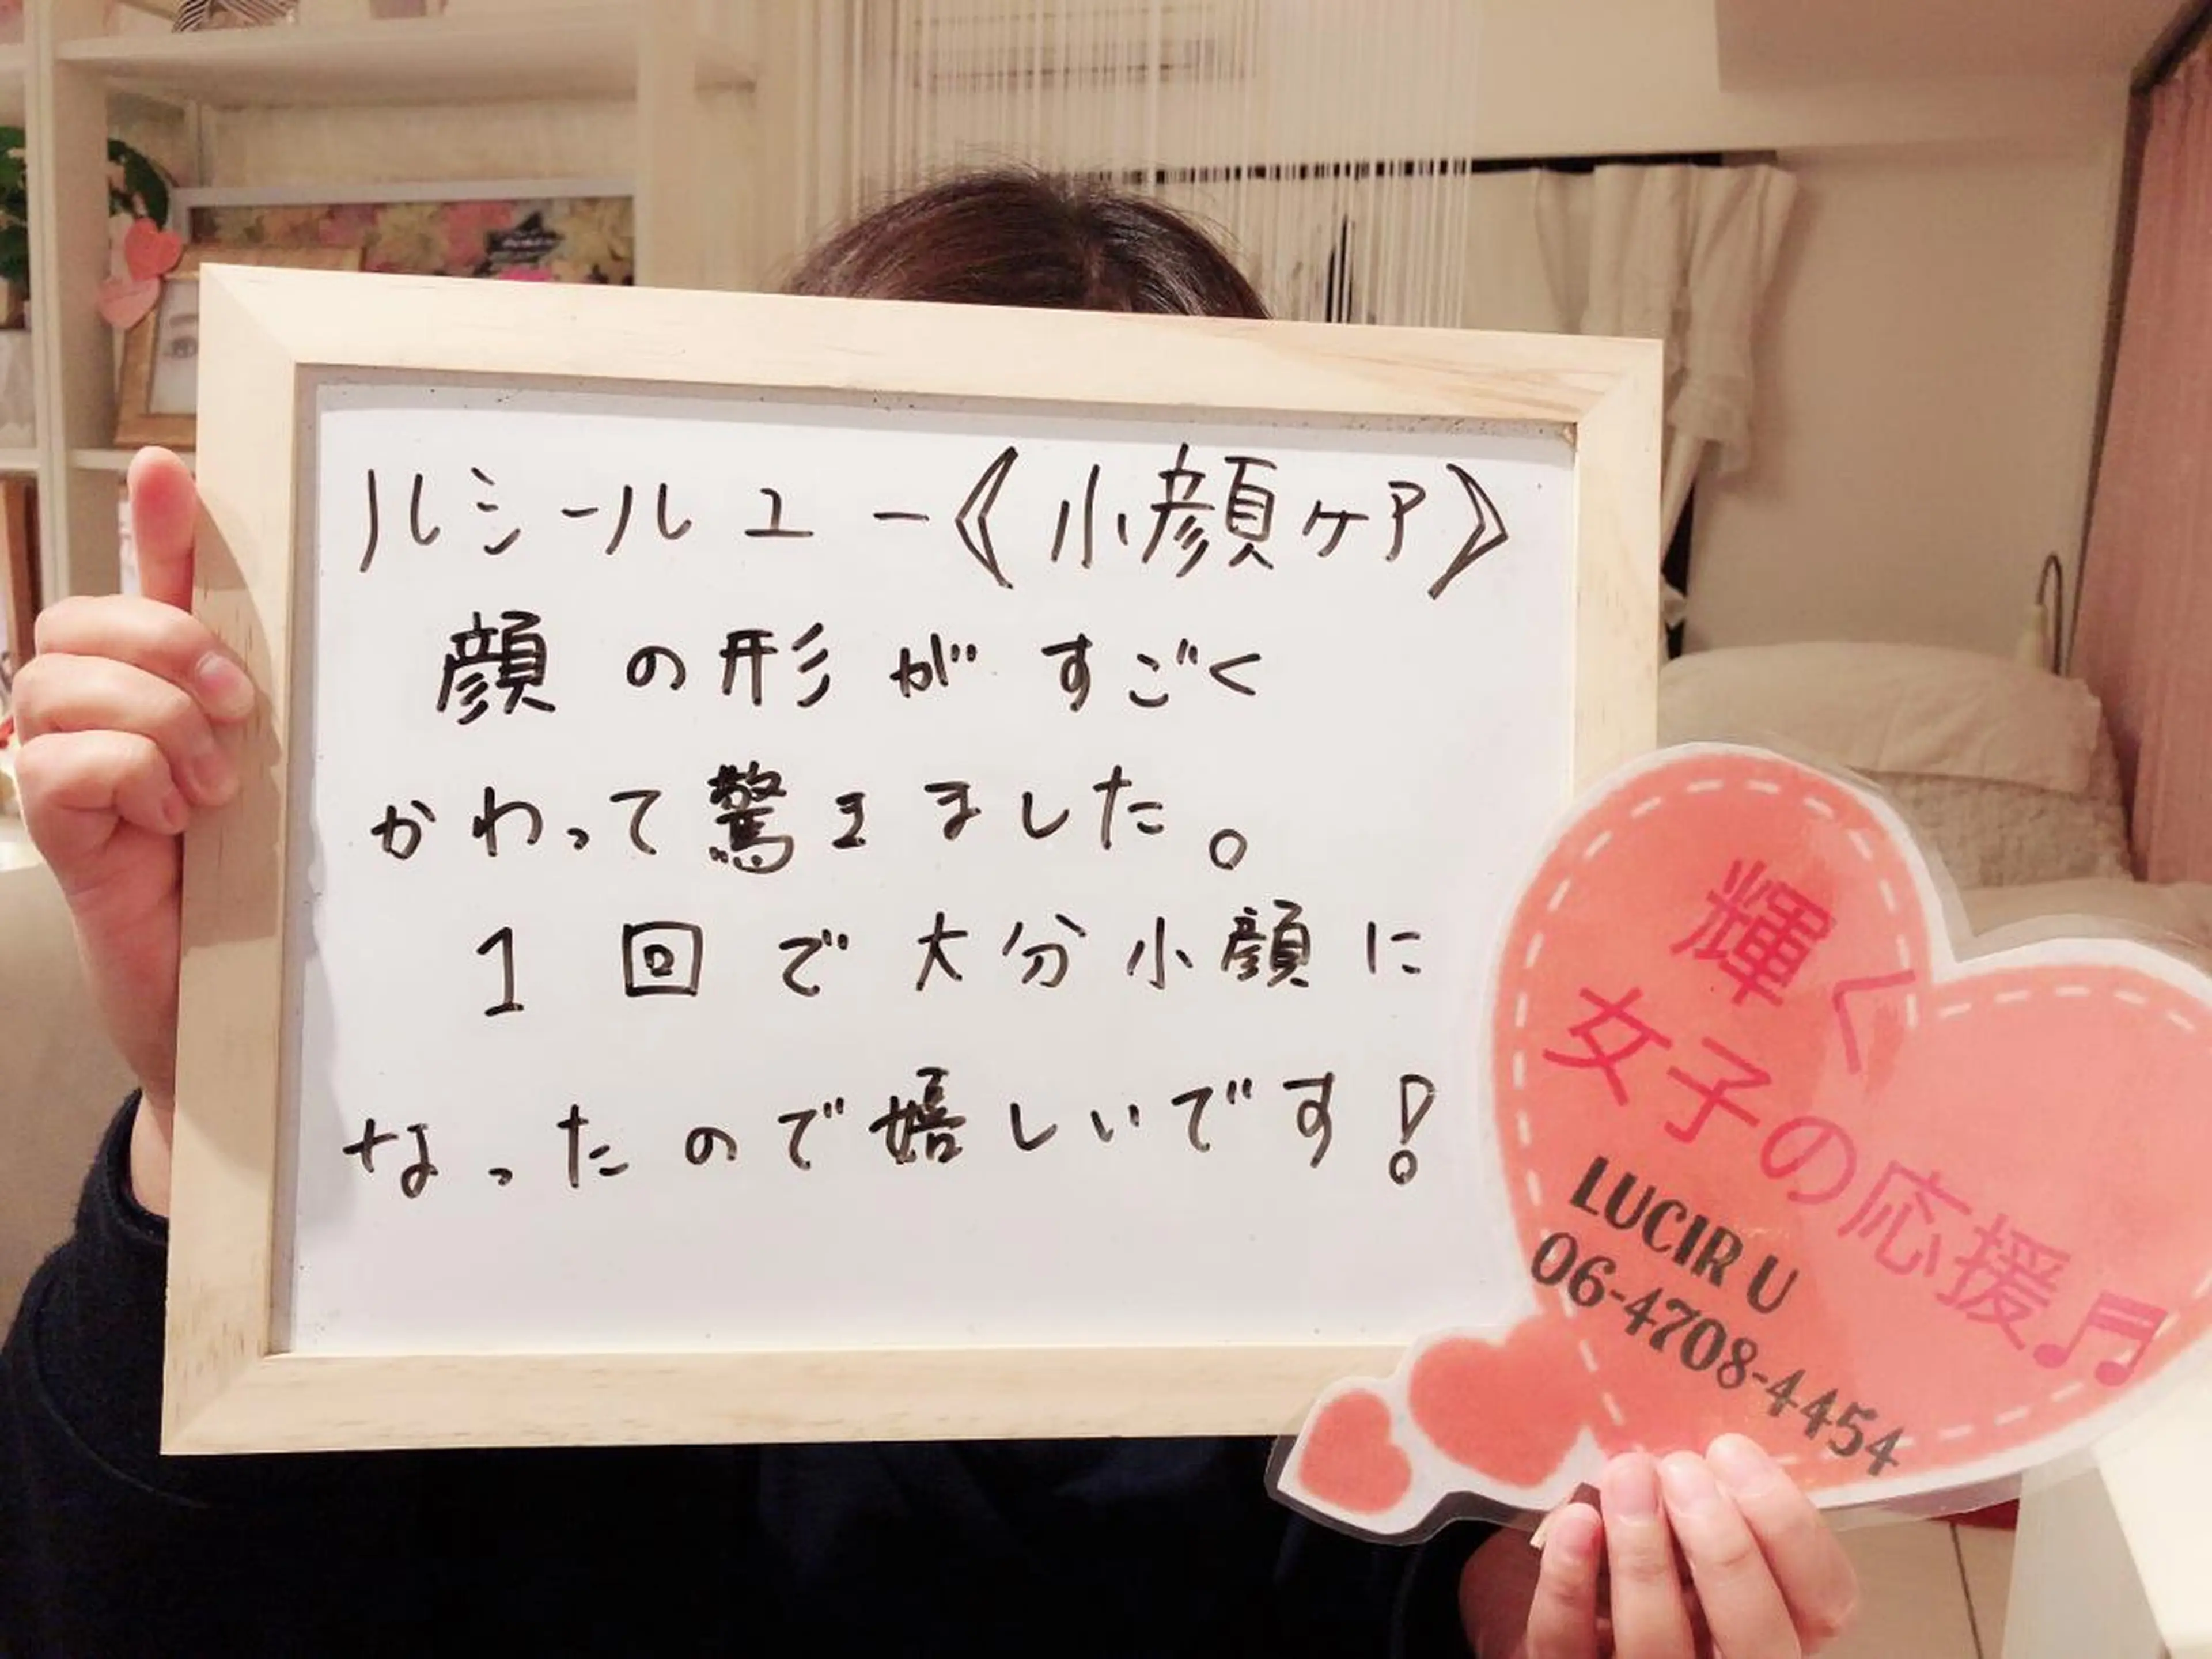 ルシールユー《小顔ケア》
顔の形がすごく
かわって驚きました。
1回で大分小顔に
なったので嬉しいです!
輝く
女子の応援♬
LUCIR U
06-4708-4454